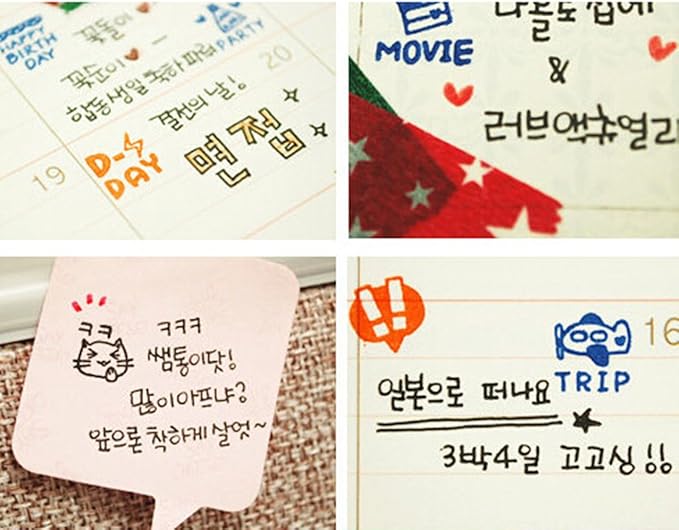 HAPPY
BIRTH
DAY
꽃돌이
꽃순이
합동 생일 축하 파뤼
PARTY
20
결전의 날!
D-
DAY
면접
19
MOVIE
나홀로 집에
&
러브액츄얼리
ㅋㅋ ㅋㅋㅋ
쌤통이닷!
많이 아프냐?
앞으론 착하게 살엇~
!!
TRIP
16
일본으로 떠나요
3박4일 고고싱!!